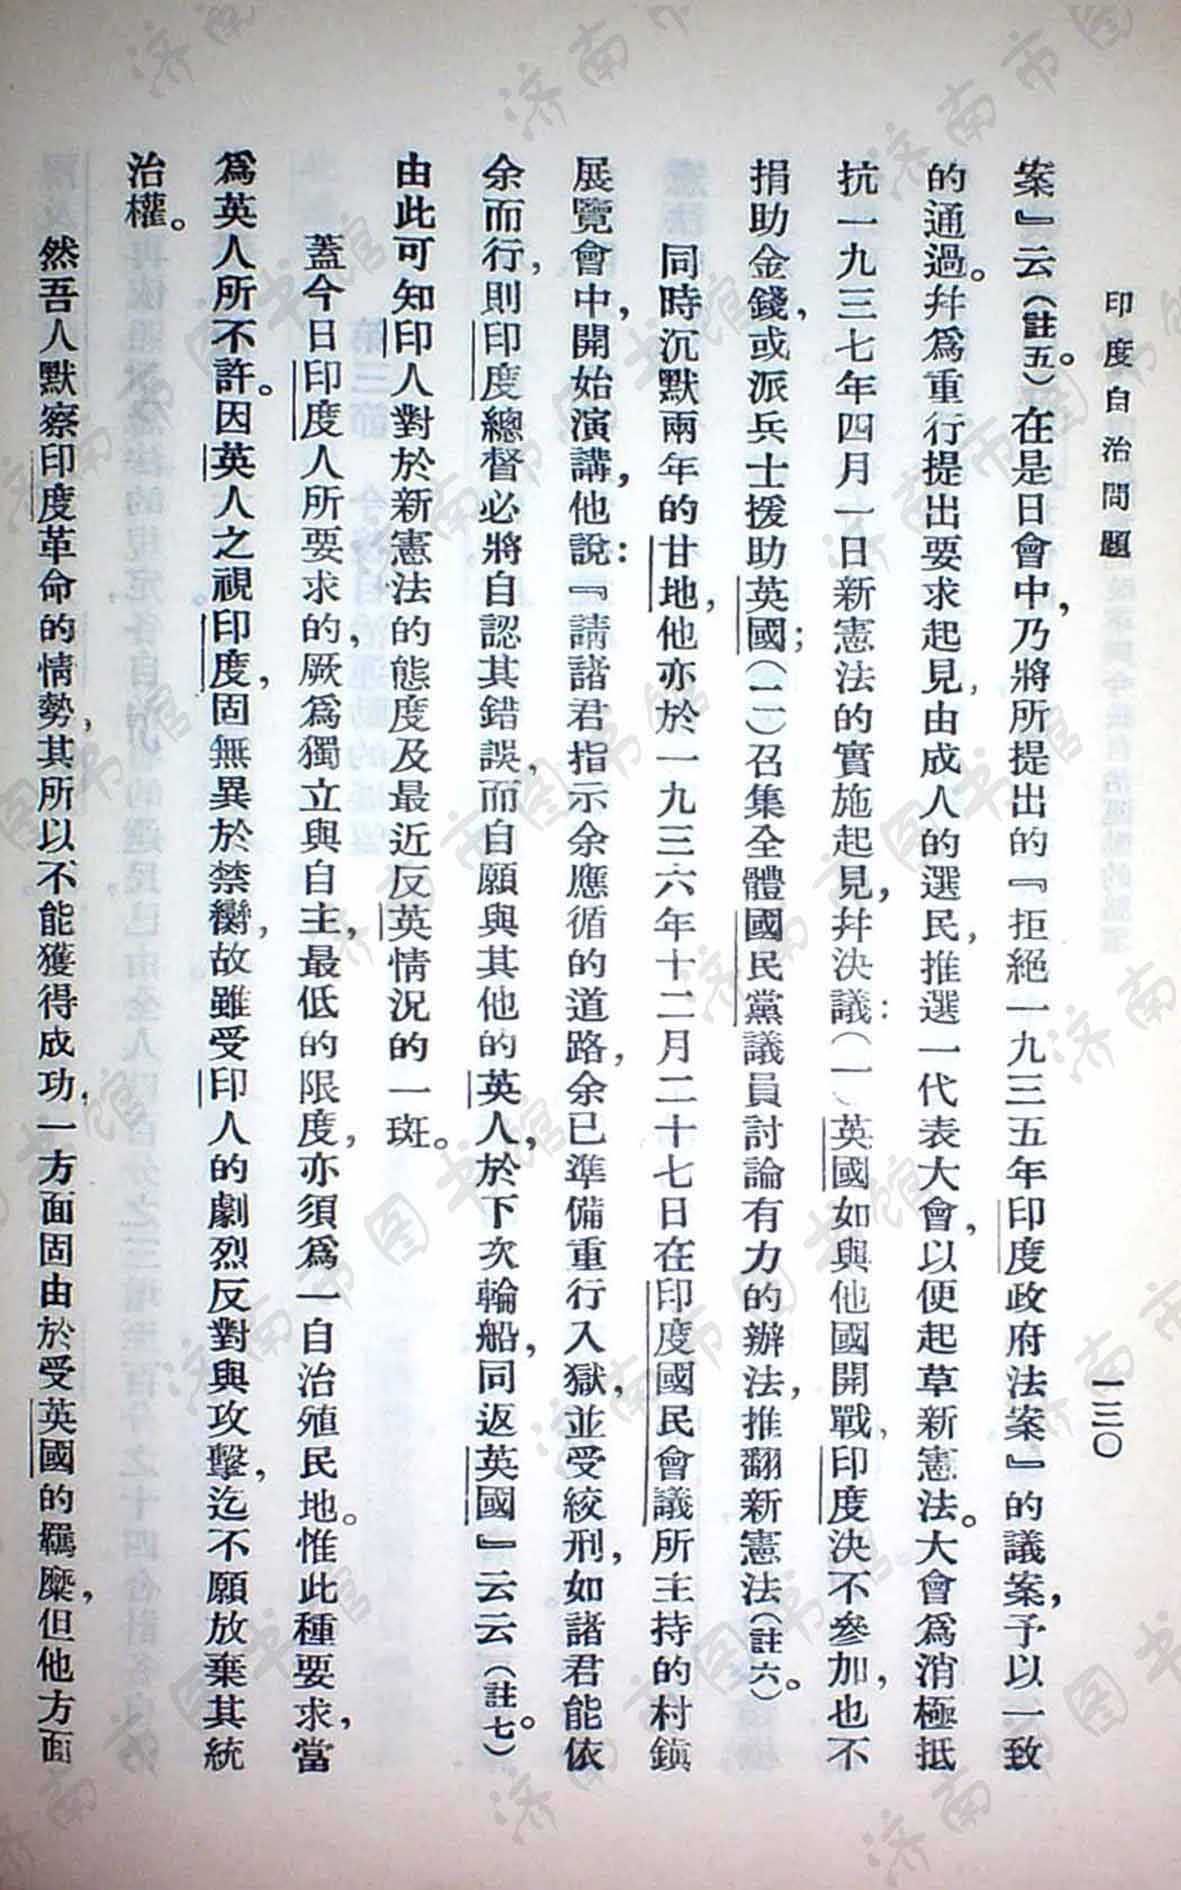 印度自治問題 一三〇
案』云(註五)。在是日會中,乃將所提出的『拒絕一九三五年印度政府法案』的議案,予以一致
的通過。幷爲重行提出要求起見,由成人的選民,推選一代表大會,以便起草新憲法。大會爲消極抵
抗一九三七年四月一日新憲法的實施起見,幷決議:(一)英國如與他國開戰,印度決不參加,也不
捐助金錢,或派兵士援助英國;(二)召集全體國民黨議員討論有力的辦法,推翻新憲法(註六)。
同時沉默兩年的甘地,他亦於一九三六年十二月二十七日在印度國民會議所主持的村鎭
展覽會中,開始演講,他說:『請諸君指示余應循的道路,余已準備重行入獄,並受絞刑,如諸君能依
余而行,則印度總督必將自認其錯誤,而自願與其他的英人,於下次輪船,同返英國』云云(註七)。
由此可知印人對於新憲法的態度及最近反英情況的一斑。
蓋今日印度人所要求的,厥爲獨立與自主,最低的限度,亦須爲一自治殖民地。惟此種要求,當
爲英人所不許。因英人之視印度,固無異於禁臠,故雖受印人的劇烈反對與攻擊,迄不願放棄其統
治權。
然吾人默察印度革命的情勢,其所以不能獲得成功,一方面固由於受英國的羈縻,但他方面
济南市图书馆